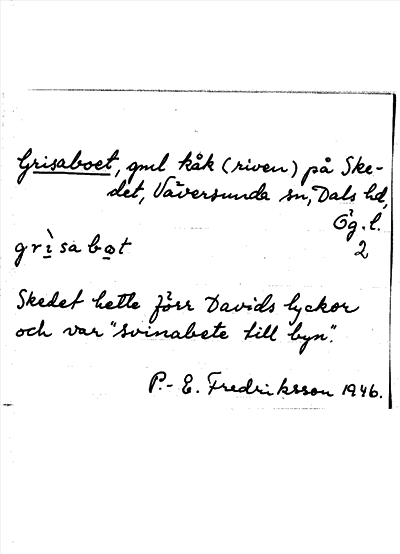 Grisaboet, gml kåk (riven) på Ske-
det, Väversunda sn, Dals hd,
Ög. l.
grìsabot 2
Skedet hette förr Davids lyckor
och var "svinabete till byn".
P.-E. Fredriksson 1946.